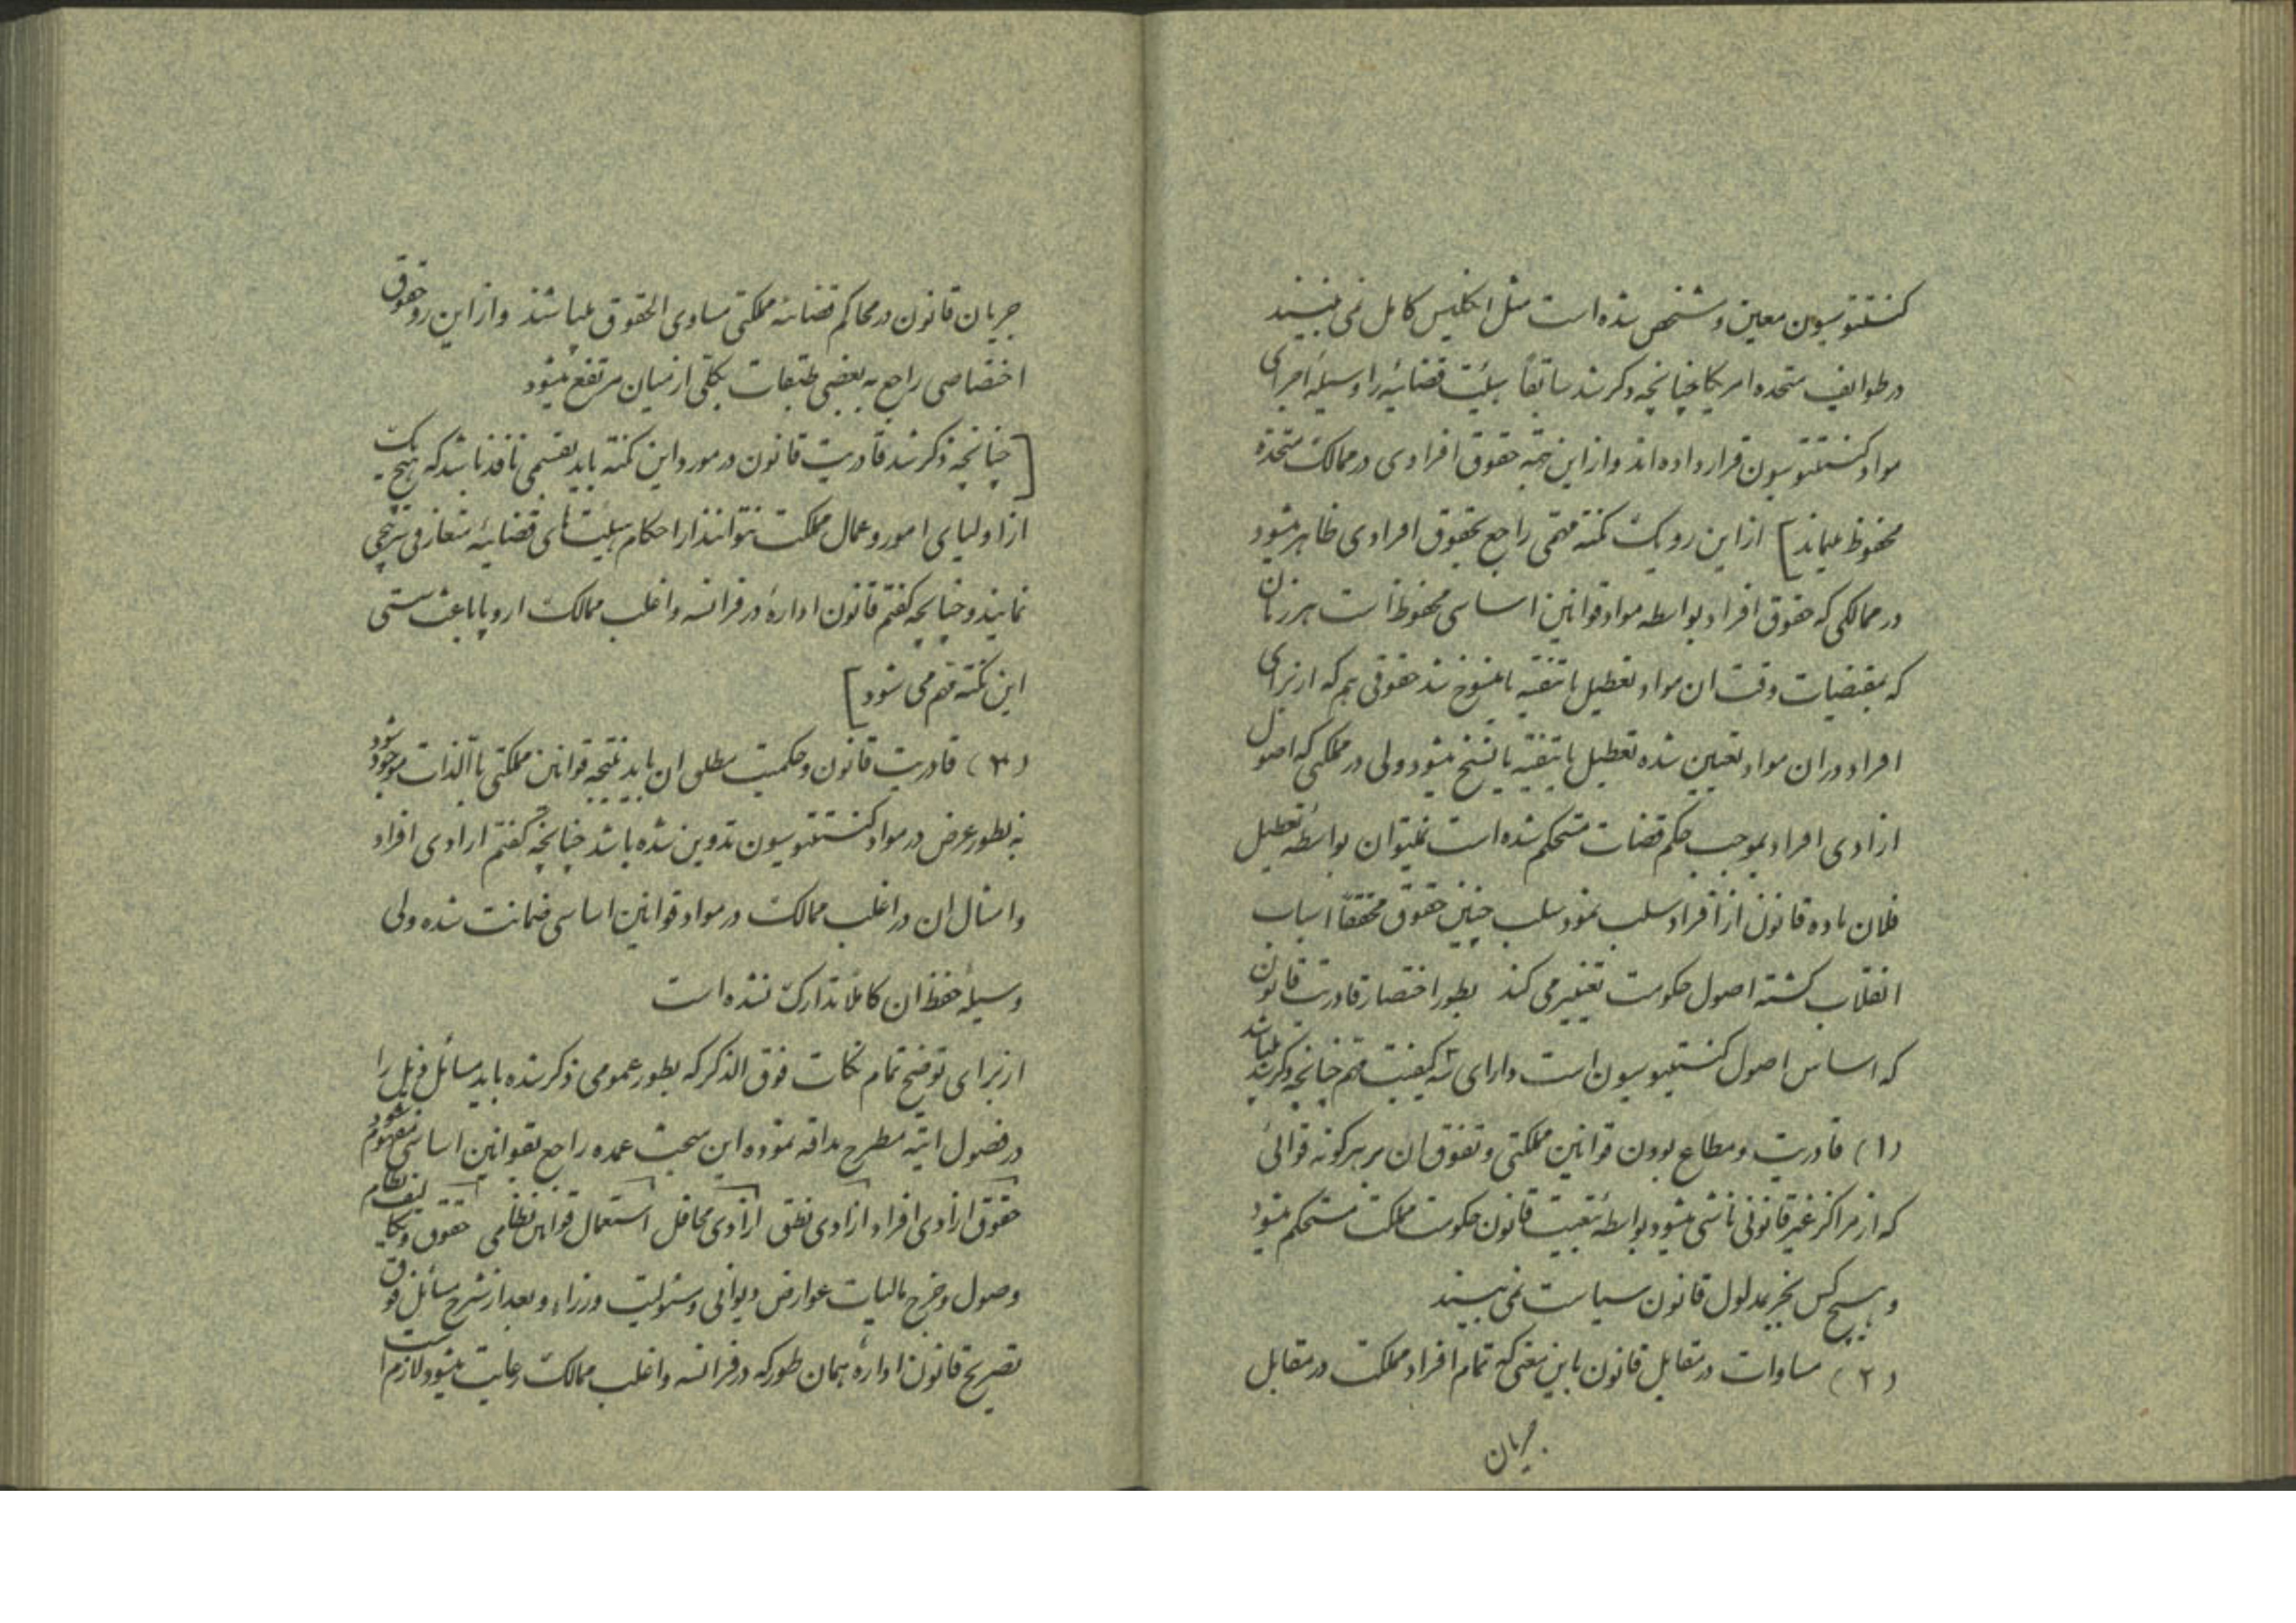 کنستتوسیون معین و مشخص شده است مثل انگلیس کامل نمی بینند
در طوایف متحده امریکا چنانچه ذکر شد سابقاً هیئت قضائیه را وسیلهٔ اجرای
مواد کنستتوسیون قرار داده اند و از این جهة حقوق افرادی در ممالک متحده
محفوظ میماند] از این رو یک نکته مهمی راجع بحقوق افرادی ظاهر میشود
در ممالکی که حقوق افراد بواسطه مواد قوانین اساسی محفوظ است هر زمان
که بمقتضیات وقت ان مواد تعطیل یا تنقیه یا منسوخ شد حقوقی هم که از برای
افراد در ان مواد تعیین شده تعطیل یا تنقیه یا نسخ میشود ولی در مملکتی که اصول
ازادی افراد بموجب حکم قضات مستحکم شده است نمیتوان بواسطه تعطیل
فلان ماده قانون از افراد سلب نمود سلب چنین حقوق محققاً اسباب
انقلاب گشته اصول حکومت تغییر می کند بطور اختصار قادریت قانون
که اساس اصول کنستتوسیون است دارای سه کیفیت مهم چنانچه ذکر شد میباشد
(۱) قادریت و مطاع بودن قوانین مملکتی و تفوق ان بر هر گونه قوائی
که از مراکز غیر قانونی ناشی میشود بواسطهٔ تبعیت قانون حکومت مملکت مستحکم میشود
و هیچ کس بجز بمدلول قانون سیاست نمی بیند
(۲) مساوات در مقابل قانون باین معنی که تمام افراد مملکت در مقابل
جریان
جریان قانون در محاکم قضائیه مملکتی مساوی الحقوق میباشند و از این رو حقوق
اختصاصی راجع به بعضی طبقات بکلی از میان مرتفع میشود
[چنانچه ذکر شد قادریت قانون در مورد این نکته باید بقسمی نافذ باشد که هیچ یک
از اولیای امور و عمال مملکت نتوانند از احکام هیئت های قضائیه متعارفی سرپیچی
نمایند و چنانچه گفتم قانون ادارهٔ در فرانسه و اغلب ممالک اروپا باعث سستی
این نکته مهم می شود]
(۳) قادریت قانون و حکمیت مطلق ان باید نتیجه قوانین مملکتی باالذات موجود شود
نه بطور عرض در مواد کنستتوسیون تدوین شده باشد چنانچه گفتم ازادی افراد
و امثال ان در اغلب ممالک در مواد قوانین اساسی ضمانت شده ولی
وسیلهٔ حفظ ان کاملا تدارک نشده است
از برای توضیح تمام نکات فوق الذکر که بطور عمومی ذکر شده باید مسائل ذیل را
در فصول اتیه مطرح مداقه نموده این مبحث عمده راجع بقوانین اساسی مفهوم شود
حقوق ازادی افراد ازادی نطق ازادی محافل استعمال قوانین نظامی حقوق و تکالیف نظام
وصول و خرج مالیات عوارض دیوانی و مسئولیت وزراء و بعد از شرح مسائل فوق
تصریح قانون ادارهٔ همان طور که در فرانسه و اغلب ممالک رعایت میشود لازم است